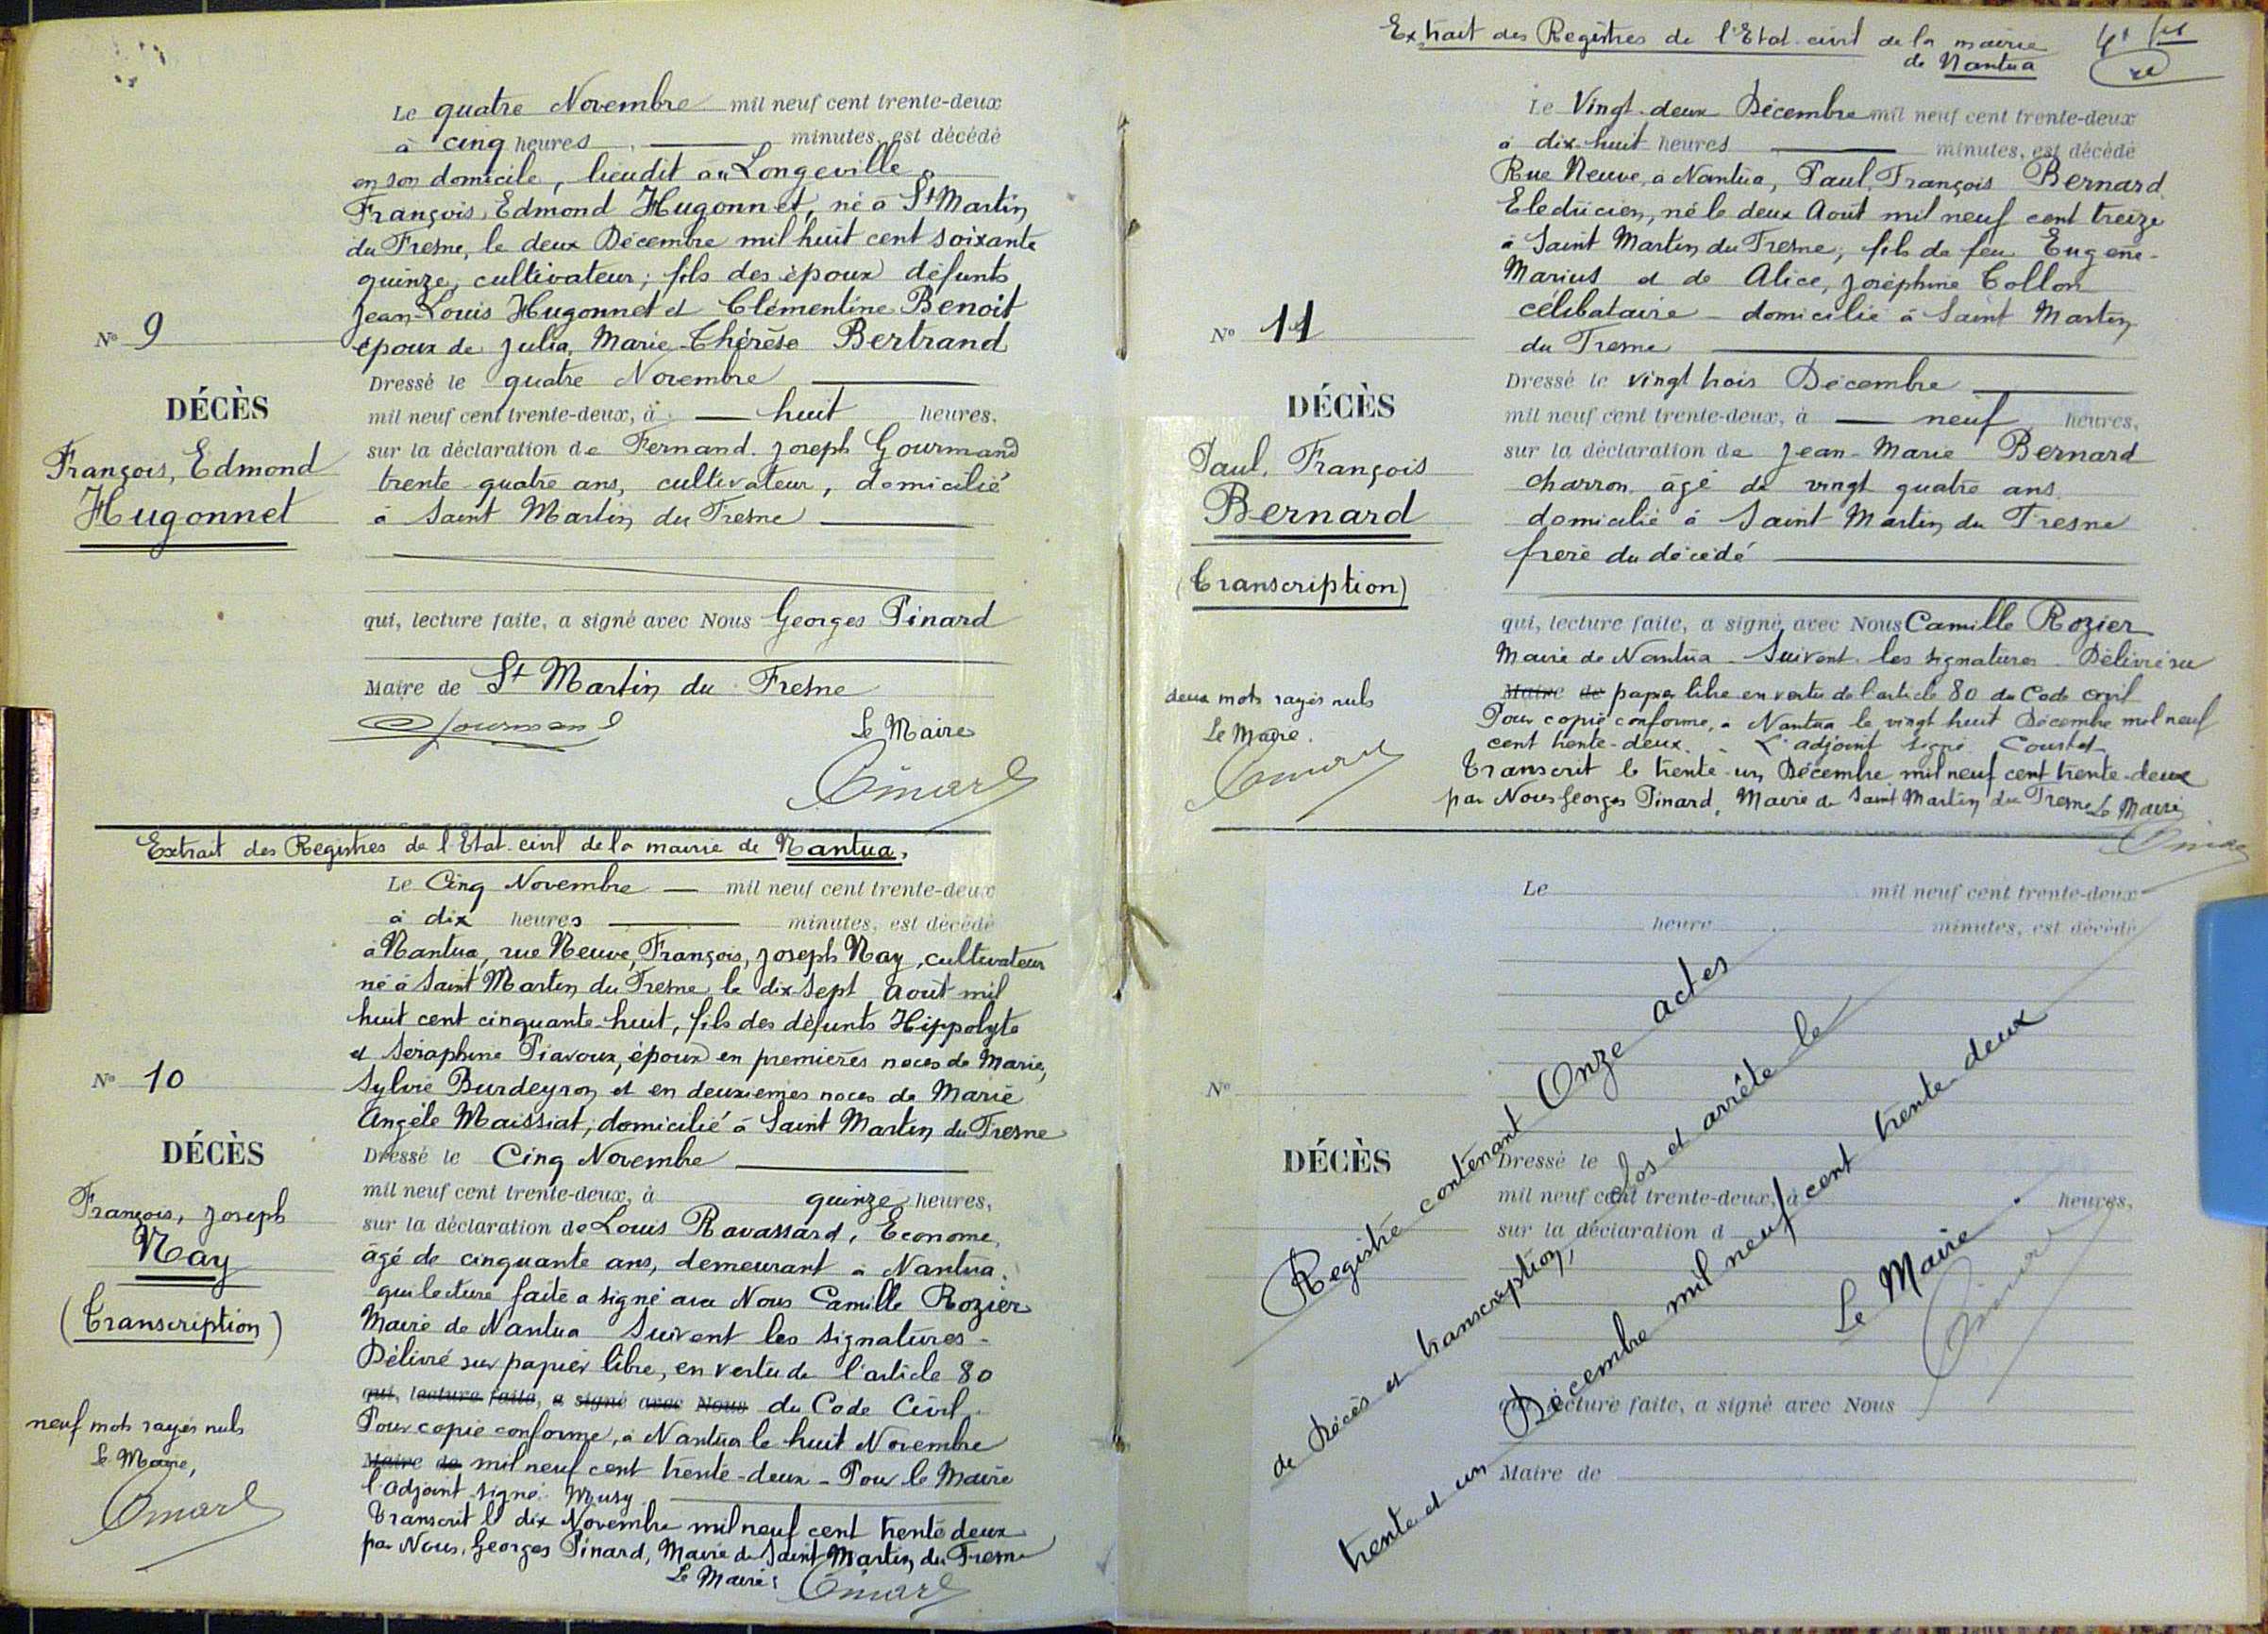 Le quatre Novembre mil neuf cent trente-deux
à cinq heures minutes, est décédé
en son domicile, lieudit à "Longeville"
François, Edmond Hugonnet, né à St Martin
du Fresne, le deux Décembre mil huit cent soixante
quinze, cultivateur; fils des époux défunts
Jean-Louis Hugonnet et Clémentine Benoit
époux de Julia, Marie-Thérèse Bertrand
N° 9
DÉCÈS
François, Edmond
Hugonnet
Dressé le quatre Novembre
mil neuf cent trente-deux, à huit heures,
sur la déclaration de Fernand. Joseph Gourmand
trente-quatre ans, cultivateur, domicilié
à Saint Martin du Fresne
qui, lecture faite, a signé avec Nous Georges Pinard
Maire de St Martin du Fresne
Gourmand
Le Maire
Pinard
Extrait des Registres de l'Etat-civil de la mairie de Nantua,
Le Cinq Novembre mil neuf cent trente-deux
à dix heures minutes, est décédé
à Nantua, rue Neuve, François, Joseph Nay, cultivateur
né à Saint Martin du Fresne le dix-sept Août mil
huit cent cinquante-huit, fils des défunts Hippolyte
et Séraphine Piavoux, époux en premières noces de Marie,
Sylvie Burdeyron et en deuxièmes noces de Marie
Angèle Maissiat; domicilié à Saint Martin du Fresne
N° 10
DÉCÈS
François, Joseph
Nay
(Transcription)
Dressé le Cinq Novembre
mil neuf cent trente-deux, à quinze heures,
sur la déclaration de Louis Ravassard, Econome,
âgé de cinquante ans, demeurant à Nantua.
qui lecture faite a signé avec Nous Camille Rozier
Maire de Nantua Suivent les signatures -
Délivré sur papier libre, en vertu de l'article 80
qui, lecture faite, a signé avec Nous du Code Civil.
Pour copie conforme, à Nantua le huit Novembre
Maire de mil neuf cent trente-deux - Pour le Maire
l'adjoint signé: Musy
Transcrit le dix Novembre mil neuf cent trente deux
par Nous, Georges Pinard, Maire de Saint-Martin du Fresne
Le Maire:
Pinard
neuf mots rayés nuls
Le Maire,
Pinard
Extrait des Registres de l'Etat-civil de la mairie
de Nantua
Le Vingt-deux Décembre mil neuf cent trente-deux
à dix-huit heures minutes, est décédé
Rue Neuve, à Nantua, Paul, François Bernard
Electricien, né le deux Août mil neuf cent treize
à Saint Martin du Fresne; fils de feu Eugène-
Marius et de Alice, Joséphine Collon
célibataire - domicilié à Saint Martin
du Fresne
N° 11
DÉCÈS
Paul, François
Bernard
(Transcription)
Dressé le vingt trois Décembre
mil neuf cent trente-deux, à neuf heures,
sur la déclaration de Jean-Marie Bernard
charron âgé de vingt quatre ans
domicilié à Saint Martin du Fresne
frère du décédé
qui, lecture faite, a signé avec Nous Camille Rozier
Maire de Nantua - Suivent les signatures - Délivré sur
Maire de papier libre en vertu de l'article 80 du Code civil
Pour copie conforme, à Nantua le vingt huit Décembre mil neuf
cent trente-deux. - L'adjoint signé Coustet
Transcrit le trente-un Décembre mil neuf cent trente-deux
par Nous Georges Pinard, Maire de Saint Martin du Fresne Le Maire
Pinard
deux mots rayés nuls
Le Maire.
Pinard
Le mil neuf cent trente-deux
heure minutes, est décédé
N°
DÉCÈS
Dressé le
mil neuf cent trente-deux, à heures,
sur la déclaration d
qui, lecture faite, a signé avec Nous
Maire de
Registre contenant Onze actes
de Décès et transcription, clos et arrêté le
trente et un Décembre mil neuf cent trente deux
Le Maire.
Pinard